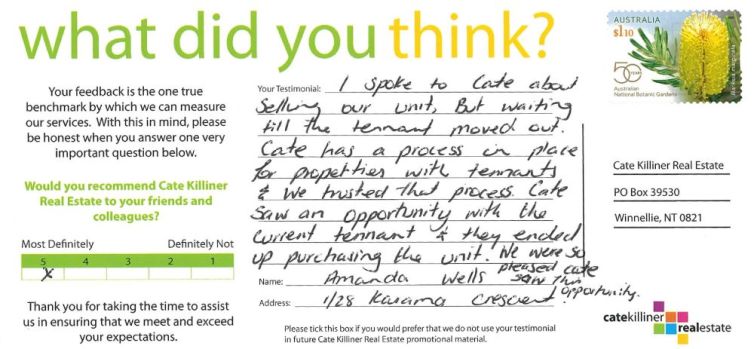 what did you think?
Your feedback is the one true
benchmark by which we can measure
our services. With this in mind, please
be honest when you answer one very
important question below.
Would you recommend Cate Killiner
Real Estate to your friends and
colleagues?
Most Definitely Definitely Not
5 4 3 2 1
X
Thank you for taking the time to assist
us in ensuring that we meet and exceed
your expectations.
Your Testimonial: I spoke to Cate about
selling our unit, But waiting
till the tennant moved out.
Cate has a process in place
for propetties with tennants
& we trusted that process. Cate
saw an opportunity with the
current tennant & they ended
up purchasing the unit. We were so
pleased cate
saw this
opportunity.
Name: Amanda Wells
Address: 1/28 Karama Crescent
Please tick this box if you would prefer that we do not use your testimonial
in future Cate Killiner Real Estate promotional material.
AUSTRALIA
$1.10
50 YEARS
Australian
National Botanic Gardens
Cate Killiner Real Estate
PO Box 39530
Winnellie, NT 0821
catekilliner
realestate